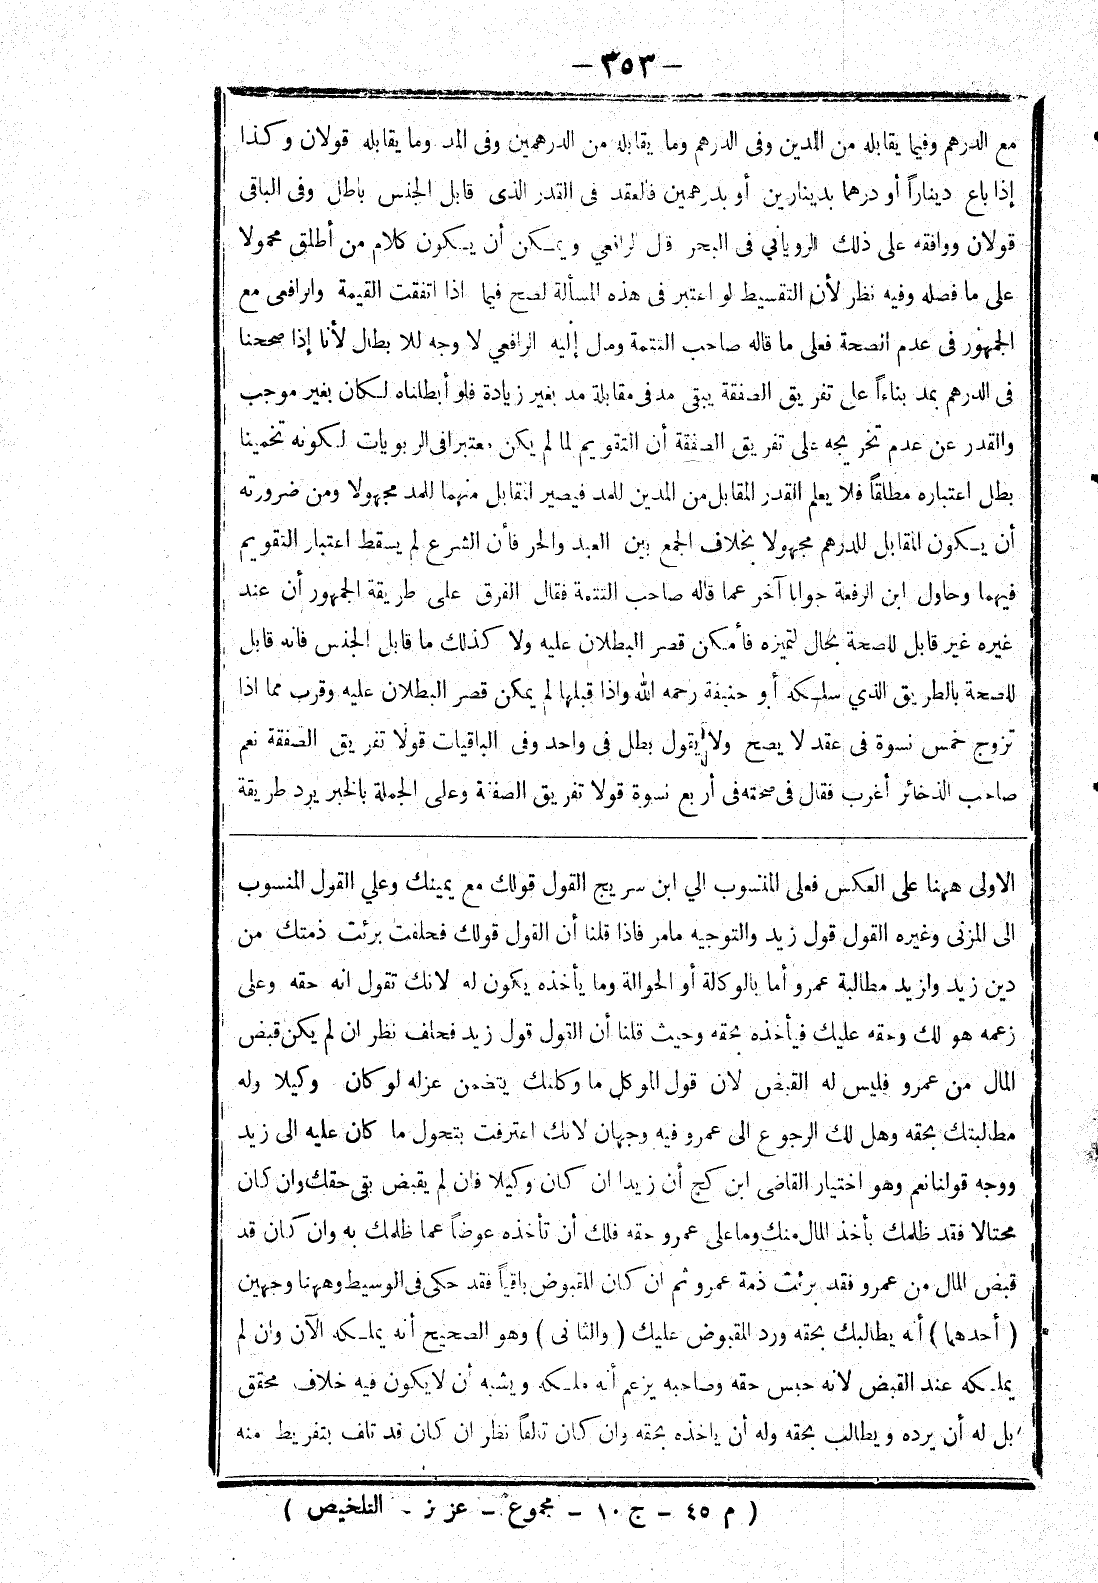 — ٣٥٣ —
مع الدرهم وفيما يقابله من المدين وفى الدرهم وما يقابله من الدرهمين وفى المد وما يقابله قولان وكذا
إذا باع ديناراً أو درهما بدينارين أو بدرهمين فالعقد فى القدر الذى قابل الجنس باطل وفى الباقى
قولان ووافقه على ذلك الرويانى فى البحر قال الرافعي ويمكن أن يكون كلام من أطلق محمولا
على ما فصله وفيه نظر لأن التقسيط لو اعتبر فى هذه المسألة لصح فيما اذا اتفقت القيمة والرافعى مع
الجمهور فى عدم الصحة فعلى ما قاله صاحب التتمة ومال إليه الرافعي لا وجه للا بطال لأنا إذا صححنا
فى الدرهم بمد بناءاً على تفريق الصفقة يبقى مد فى مقابلة مد بغير زيادة فلو أبطلناه لكان بغير موجب
والقدر عن عدم تخريجه على تفريق الصفقة أن التقويم لما لم يكن معتبرا فى الربويات لكونه تخمينا
بطل اعتباره مطلقاً فلا يعلم القدر المقابل من المدين للمد فيصير المقابل منهما للمد مجهولا ومن ضرورته
أن يكون المقابل للدرهم مجهولا بخلاف الجمع بين العبد والحر فأن الشرع لم يسقط اعتبار التقويم
فيهما وحاول ابن الرفعة جوابا آخر عما قاله صاحب التتمة فقال الفرق على طريقة الجمهور أن عند
غيره غير قابل للصحة بحال لتميزه فأمكن قصر البطلان عليه ولا كذلك ما قابل الجنس فانه قابل
للصحة بالطريق الذي سلكه أبو حنيفة رحمه الله واذا قبلها لم يمكن قصر البطلان عليه وقرب مما اذا
تزوج خمس نسوة فى عقد لا يصح ولا يقول بطل فى واحد وفى الباقيات قولا تفريق الصفقة نعم
صاحب الذخائر أغرب فقال فى صحته فى أربع نسوة قولا تفريق الصفقة وعلى الجملة بالخبر يرد طريقة
الاولى ههنا على العكس فعلى المنسوب الي ابن سريج القول قولك مع يمينك وعلي القول المنسوب
الى المزنى وغيره القول قول زيد والتوجيه مامر فاذا قلنا أن القول قولك فحلفت برئت ذمتك من
دين زيد ولزيد مطالبة عمرو أما بالوكالة أو الحوالة وما يأخذه يكون له لانك تقول انه حقه وعلى
زعمه هو لك وحقه عليك فيأخذه بحقه وحيث قلنا أن القول قول زيد فحلف نظر ان لم يكن قبض
المال من عمرو فليس له القبض لان قول الموكل ما وكلتك يتضمن عزله لو كان وكيلا وله
مطالبتك بحقه وهل لك الرجوع الى عمرو فيه وجهان لانك اعترفت بتحول ما كان عليه الى زيد
ووجه قولنا نعم وهو اختيار القاضى ابن كج أن زيدا ان كان وكيلا فان لم يقبض بقى حقك وان كان
محتالا فقد ظلمك بأخذ المال منك وما على عمرو حقه فلك أن تأخذه عوضاً عما ظلمك به وان كان قد
قبض المال من عمرو فقد برئت ذمة عمرو ثم ان كان المقبوض باقياً فقد حكى فى الوسيط وههنا وجهين
( أحدهما ) أنه يطالبك بحقه ورد المقبوض عليك ( والثانى ) وهو الصحيح أنه يملكه الآن وان لم
يملكه عند القبض لانه حبس حقه وصاحبه يزعم أنه ملكه ويشبه أن لا يكون فيه خلاف محقق
بل له أن يرده ويطالب بحقه وله أن ياخذه بحقه وان كان تالفاً نظر ان كان قد تلف بتفريط منه
( م ٤٥ - ج ١٠ - مجموع - عزيز - التلخيص )